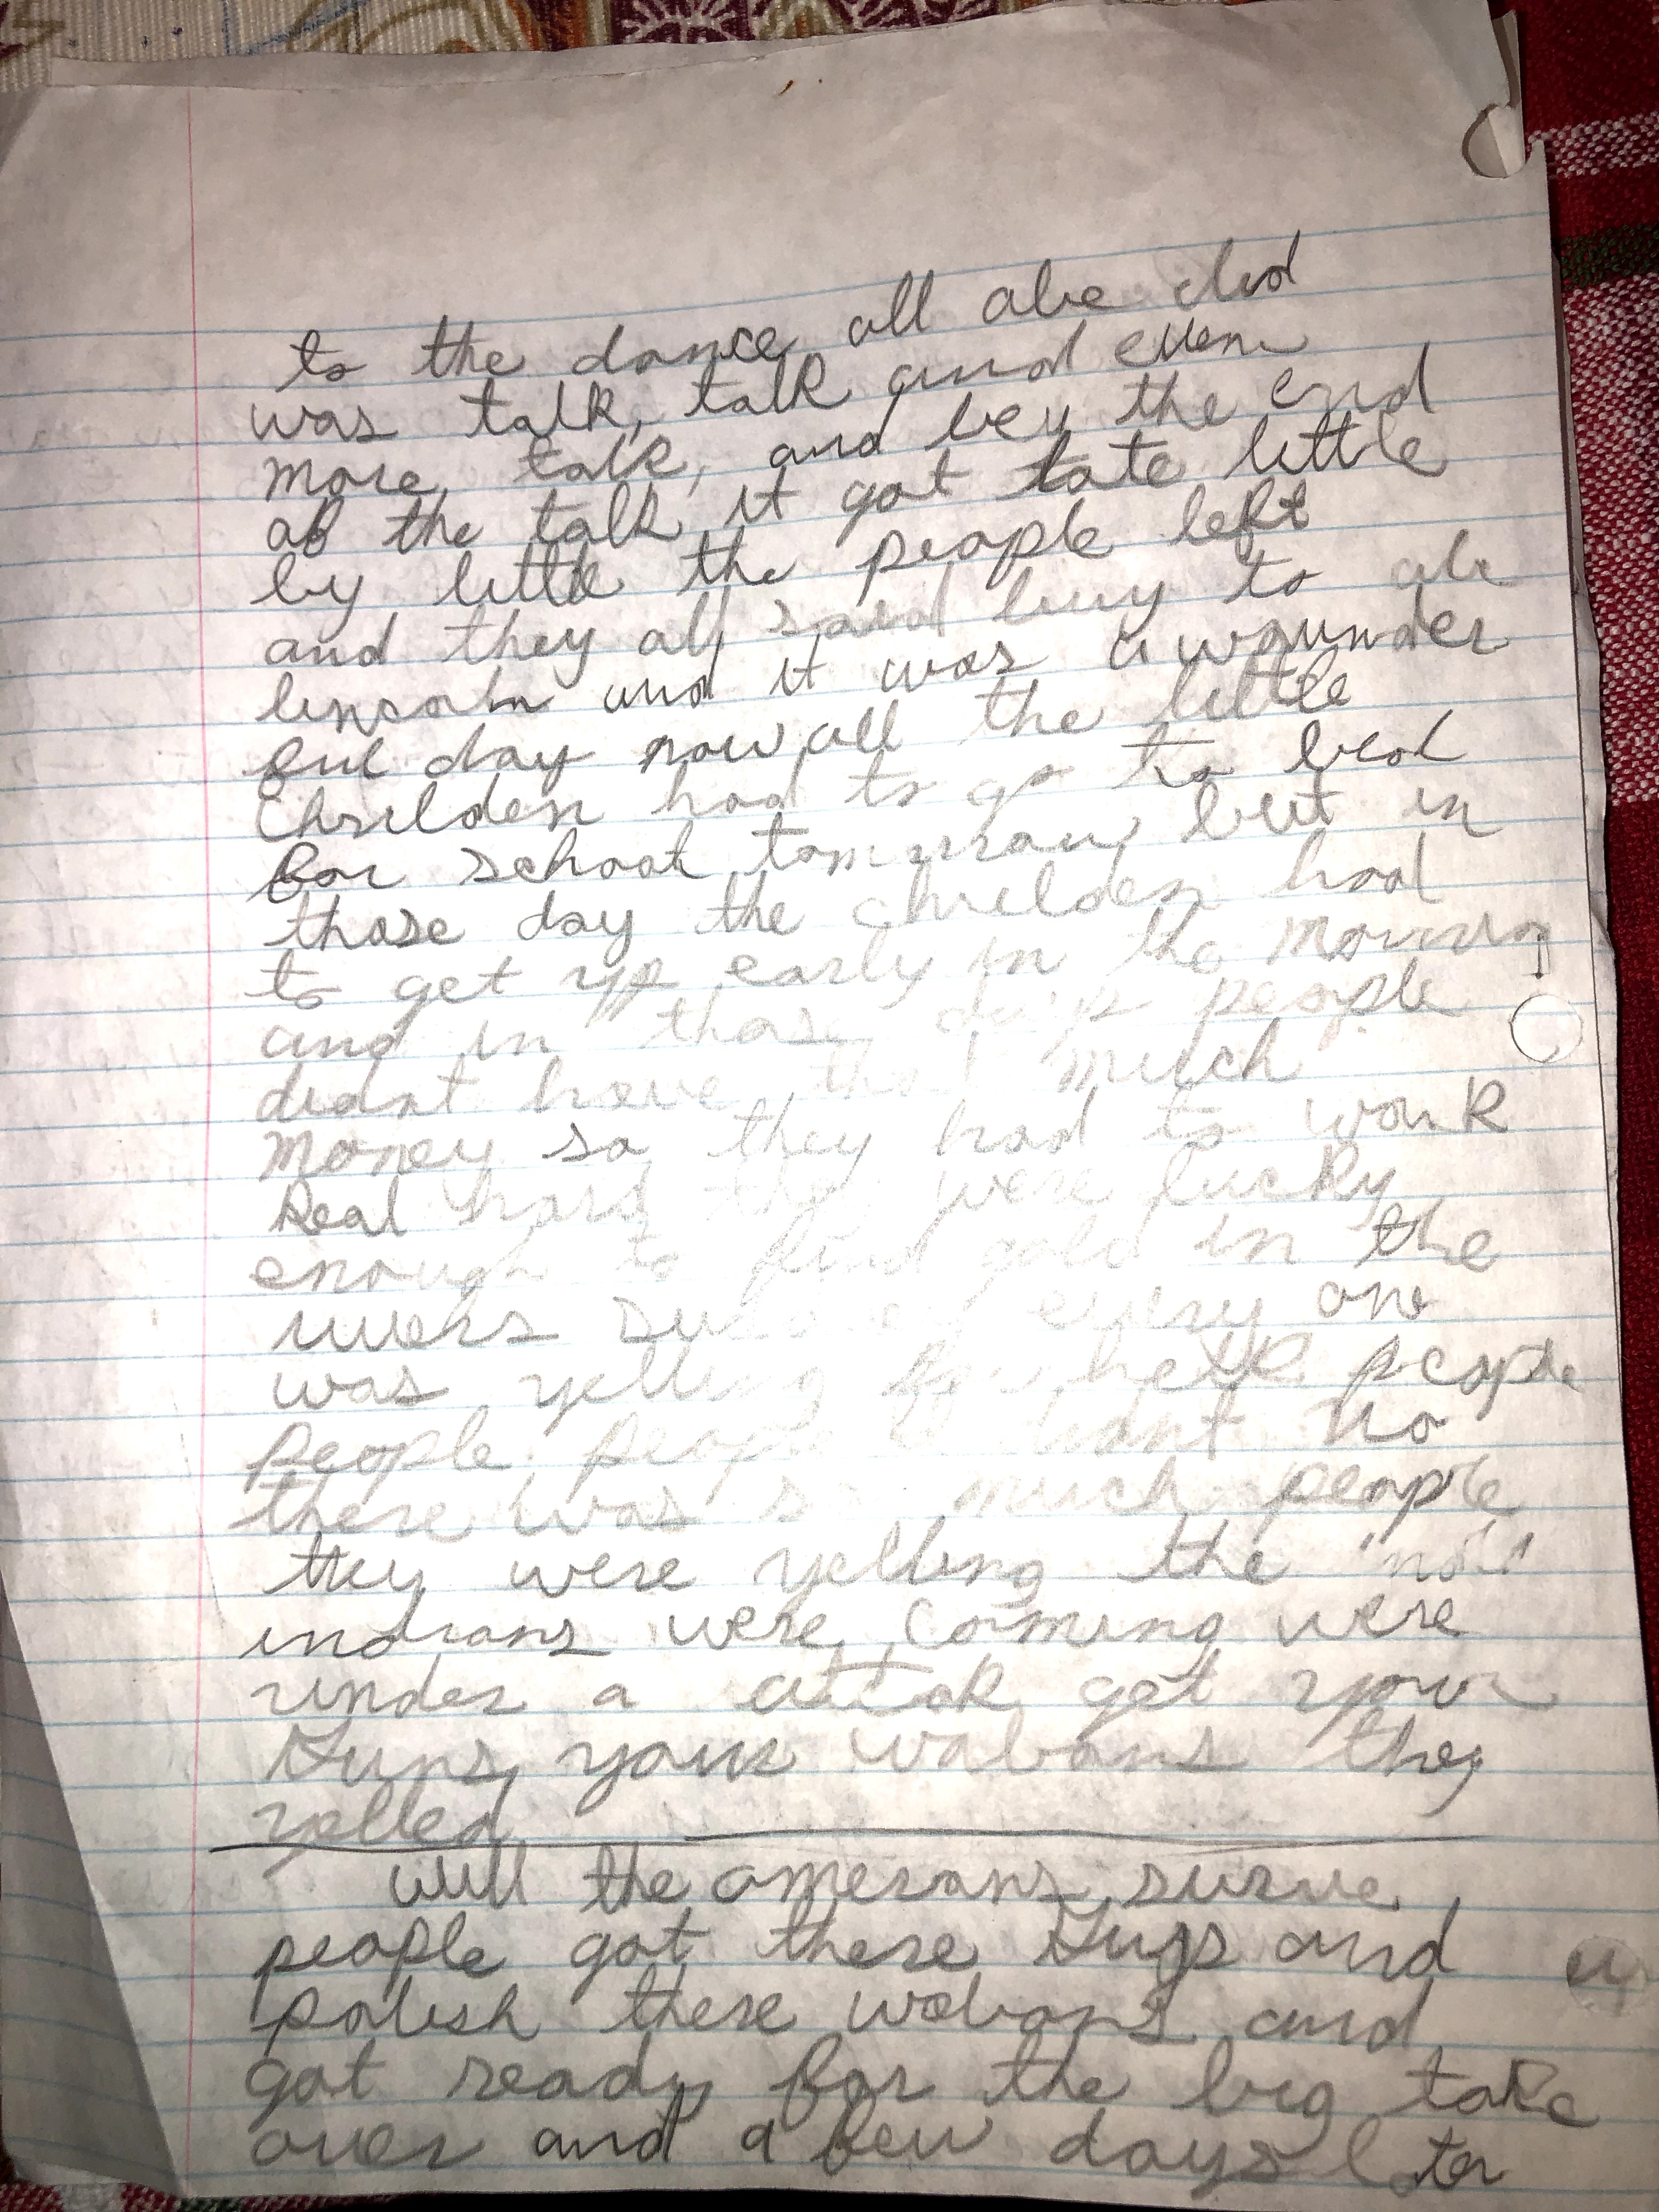 to the dance all abe did
was talk, talk and even
more talk, and bey the end
of the talk it got late little
by little the people left
and they all said buy to abe
lincoln and it was a wounder
ful day now all the little
Chrilden had to go to bed
for school tomurow but in
those day the chrilden had
to get up early in the morning
and in those people
didnt have that much
money so they had to work
Real hard they were lucky
enough to find gold in the
rivers every one
was yelling for help people
people, people dont no
there was so much people
they were yelling the
indians were coming were
under a attak get your
Guns your wabons they
yelled
will the amerans surve
people got there Guns and
polish there wabons and
got ready for the big take
over and a few days later